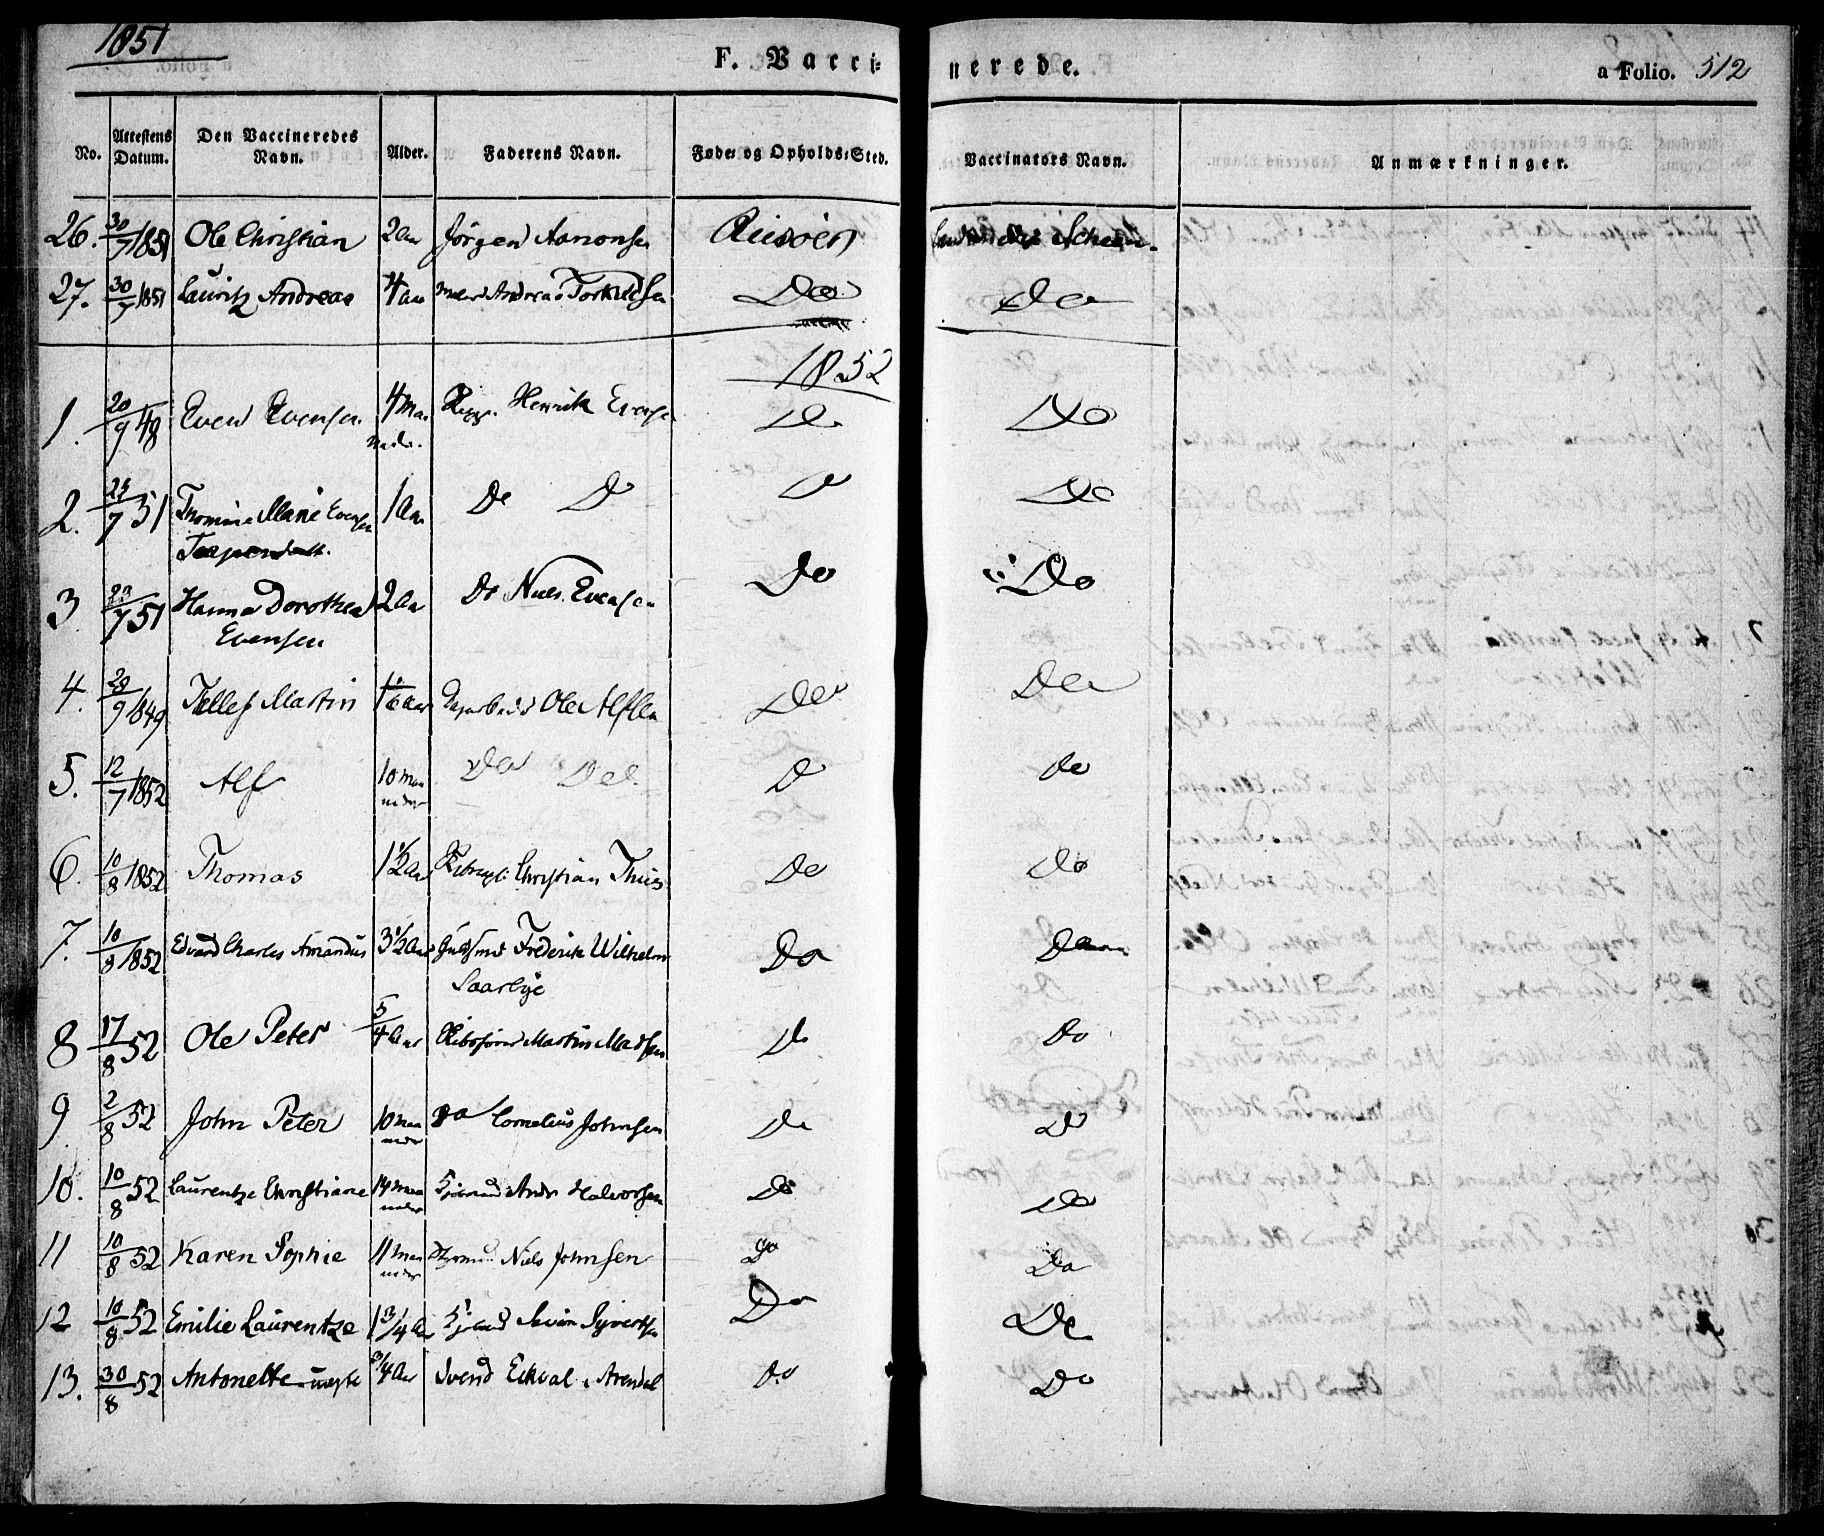 1851
F. Vaccinerede.
a Folio. 512
No. Attestens Datum. Den Vaccineredes Navn. Alder. Faderens Navn. Føde- og Opholds-Sted. Vaccinators Navn. Anmærkninger.
26. 30/7 1851 Ole Christian 2 Aar Jörgen Aanonsen Riisöer
27. 30/7 1851 Lauritz Andreas 4 Aar Andreas Torkildsen Do Do
1852
1. 20/9 48 Even Evensen 4 Maa Henrik Evensen Do Do
neder
2. 24/7 51 Thomine Marie Evensen 1 Aar Do Do Do Do
3 23/7 51 Hanna Dorothea 2 Aar Do Niels Evensen Do Do
Evensen
4. 28/9 1849 Tellef Martin Ole Alfsen Do Do
5. 12/7 1852 Alf 10 maa Do Do Do Do
neder
6. 10/8 1852 Thomas 1 1/2 Aar Christian Thiis Do Do
7. 10/8 1852 Edvard Charles Amandus 3 1/2 Aar Guldsmed Frederik Wilhelm Do Do
Saarbye
8 17/8 52 Ole Peter 5/4 Aar Martin Madsen Do Do
9 2/8 52 John Peter 10 maa Do Cornelius Johnsen Do Do
neder
10. 10/8 52 Laurentze Christiane 14 maa Andr Halvorsen Do Do
neder
11 10/8 52 Karen Sophie 11 maa Niels Johnsen Do Do
neder
12 10/8 52 Emilie Laurentze 1 3/4 Aar Syvertsen Do Do
13. 30/8 52 Antonette uægte 3/4 Aar Svend Eckval, Arendal Do Do